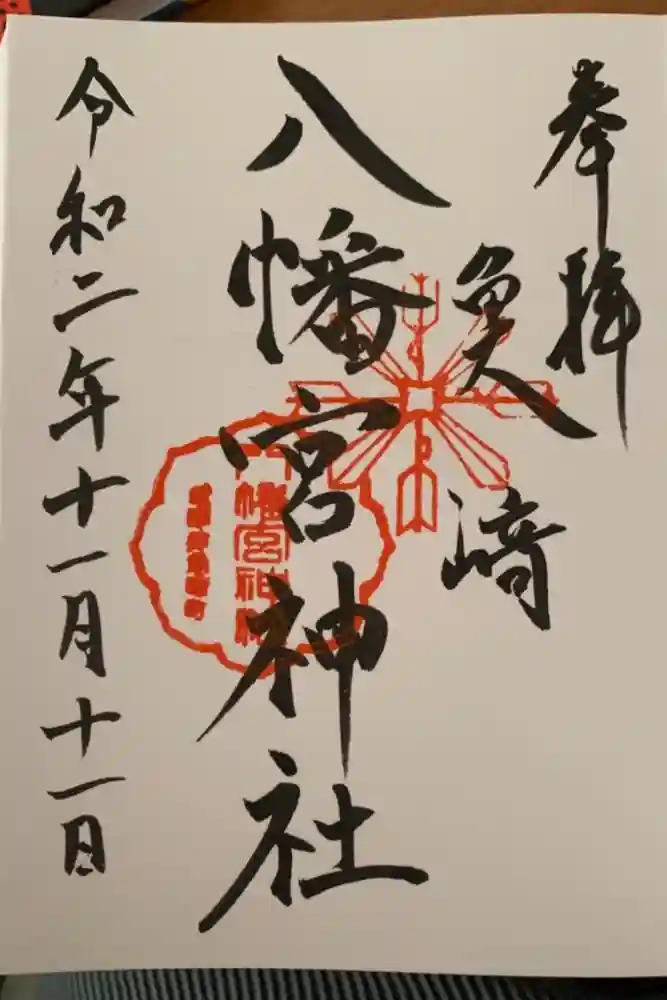 奉拝
魚崎
八幡宮神社
八幡宮神社
令和二年十一月十一日